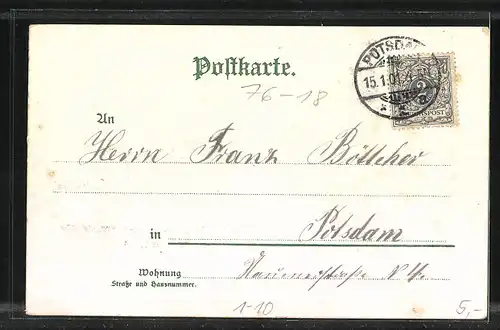 POTSDAM
15.1.01
Postkarte.
2
REICHSPOST
76-18
An
Herrn Franz Böttcher
in Potsdam
Wohnung
Straße und Hausnummer.
1-10
5,-